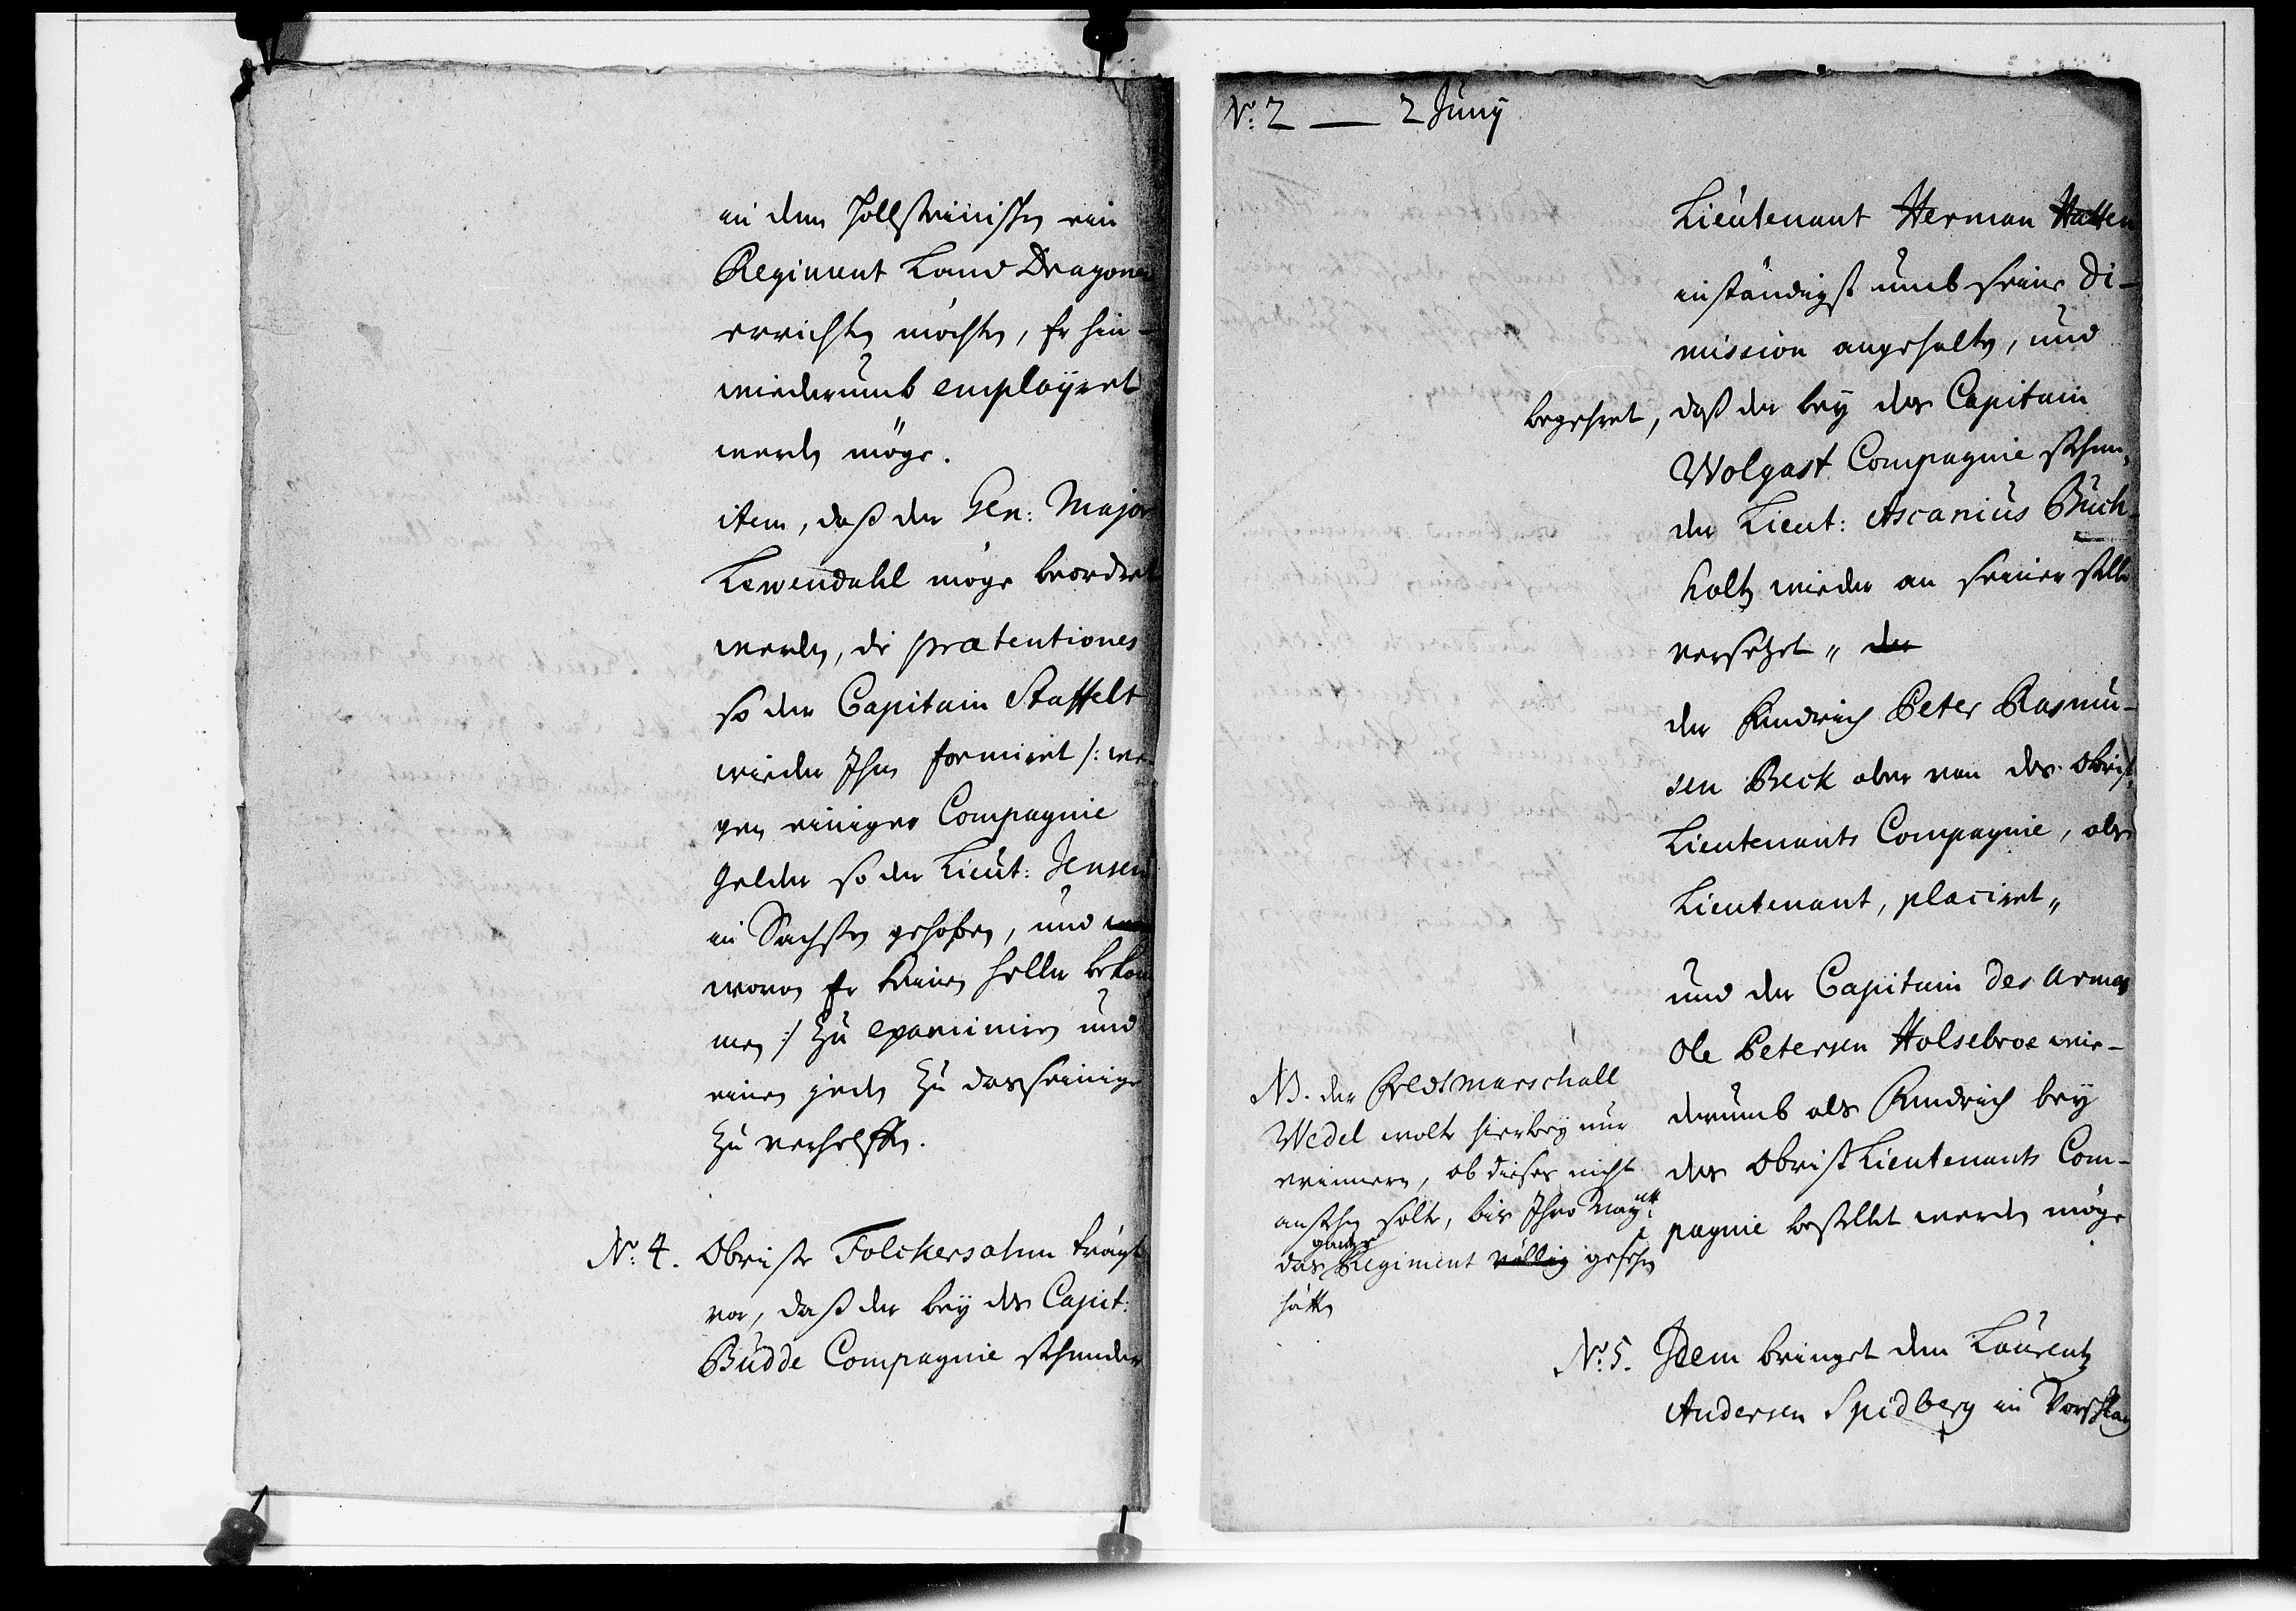 in dem Hollsteinischen ein
Regiment Land Dragoner
errichten möchten, Er hin-
wiederumb employret
werden möge.
item, daß der Gen: Major
Lewendahl möge beordret
werden, die praetentiones
so der Capitain Staffelt
wieder Ihm formiret /: we-
gen einiger Compagnie
gelder so der Lieut: Jensen
in Sachsen gehoben, und
wovon Er keinen heller bekom
men :/ zu examiniren und
einen jeden zu das seinige
zu verhelffen.
No: 4. Obriste Folckersahm trägt
vor, daß der bey des Capit:
Budde Compagnie stehender
No: 2 — 2 Juny
Lieutenant Herman Hatten
inständigst umb seine Di-
mission angehalten, und
begehret, daß der bey des Capitain
Wolgast Compagnie stehen-
der Lieut: Ascanius Buch-
holtz wieder an seiner stelle
versetzet „ der
der Fendrich Peter Rasmu-
sen Beck aber von des Obrist
Lieutenants Compagnie, als
Lieutenant, placiret „
und der Capitain des armes
Ole Petersen Holsebroe wie-
derumb als Fendrich bey
des Obrist Lieutenants Com-
pagnie bestellet werden möge
NB. der Feldtmarschall
Wedel wolte hierbey nur
erinnern, ob dieses nicht
anstehen solte, bis Ihro Maytt:
gantze
das Regiment völlig gesehen
hätten
No: 5. Idem bringet den Laurentz
Andersen Spidberg in Vorschlag